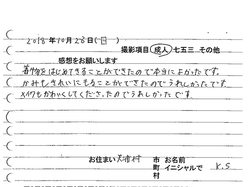 2018年10月28日(日)
撮影項目 成人 七五三 その他
感想をお願いします
着物をはじめてきることができたので本当によかったです。
かみもきれいにもることができたのでうれしかったです。
メイクもかわいくしてくださったのでうれしかったです。
お住まい 市町村
お名前 イニシャルで K.S